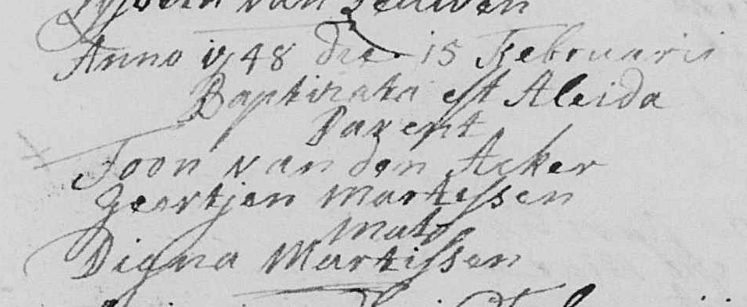 van Leuwen
Anno 1748 die 15 Februarii
Baptizata est Aleida
Parent
Toon van den Acker
Geertjen Martissen
Mat
Digna Martissen